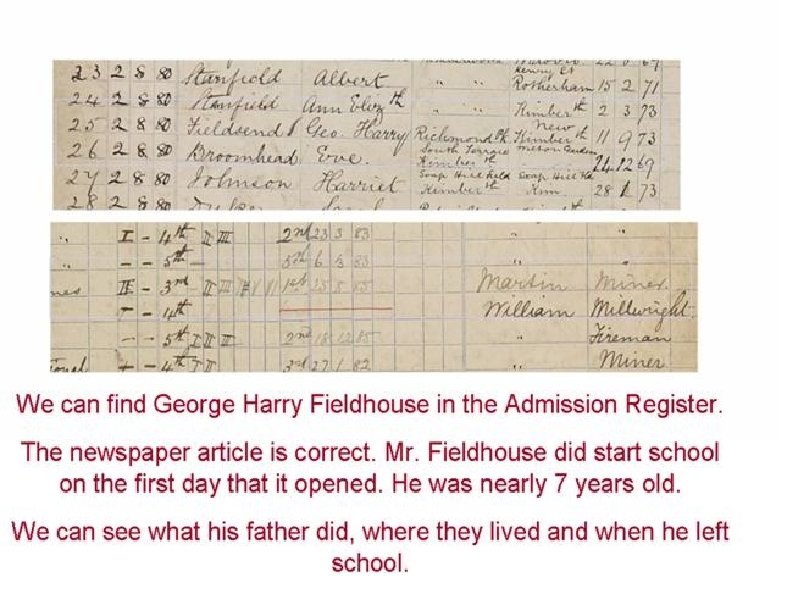 23 2 8 80 Stanfield Albert " " Rotherham 15 2 71
24 2 8 80 Stanfield Ann Elizth " " Kimberth 2 3 73
New
25 2 8 80 Fieldsend Geo. Harry Richmond Kimberth 11 9 73
26 2 8 80 Broomhead Eve. South Terrace 24 12 69
Kimberth
27 2 8 80 Johnson Harriet Kimberth Kim 28 1 73
28 2 8 80
" I - 4th II III 2nd 23 3 83 " "
" - - 5th - 5th 6 3 83 " "
II - 3rd II III 1st Martin Miner
- 4th William Millwright
- - 5th I II II 2nd " Fireman
- 4th 3rd 27 1 82 " Miner
We can find George Harry Fieldhouse in the Admission Register.
The newspaper article is correct. Mr. Fieldhouse did start school
on the first day that it opened. He was nearly 7 years old.
We can see what his father did, where they lived and when he left
school.